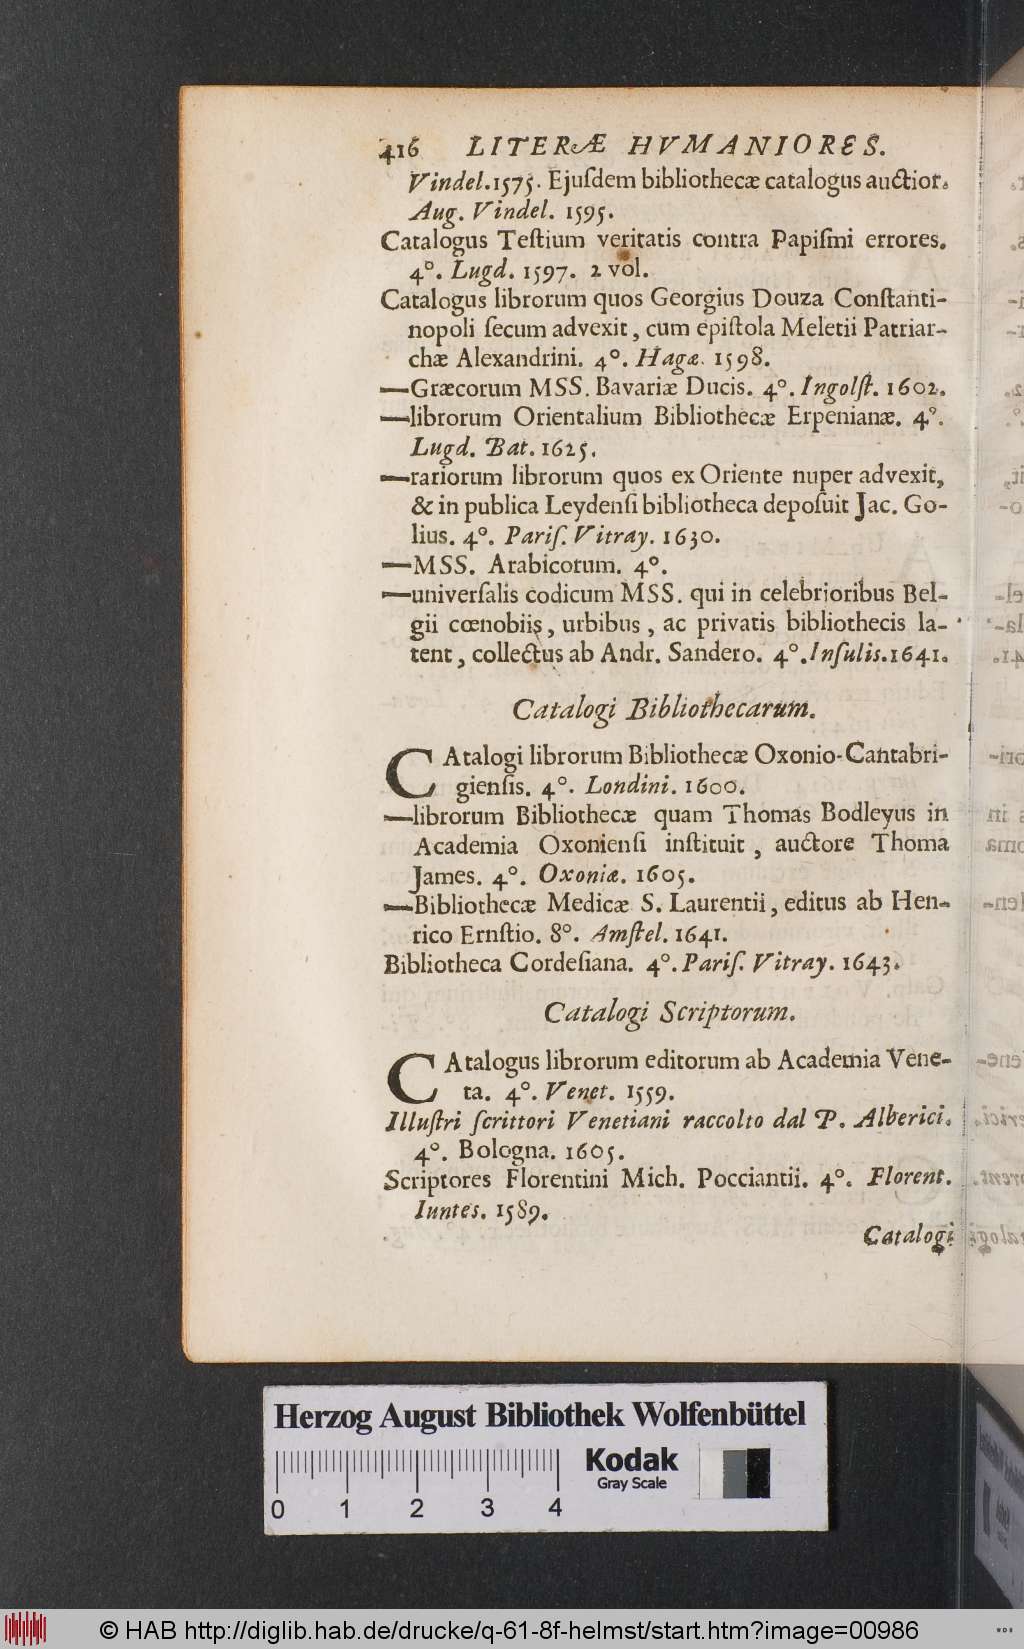 416 LITERÆ HVMANIORES.
Vindel.1575. Ejuſdem bibliothecæ catalogus auctior.
Aug. Vindel. 1595.
Catalogus Teſtium veritatis contra Papiſmi errores.
4°. Lugd. 1597. 2 vol.
Catalogus librorum quos Georgius Douza Conſtanti-
nopoli ſecum advexit, cum epiſtola Meletii Patriar-
chæ Alexandrini. 4°. Hagæ. 1598.
—Græcorum MSS. Bavariæ Ducis. 4°. Ingolſt. 1602.
—librorum Orientalium Bibliothecæ Erpenianæ. 4°.
Lugd. Bat. 1625.
—rariorum librorum quos ex Oriente nuper advexit,
& in publica Leydenſi bibliotheca depoſuit Jac. Go-
lius. 4°. Pariſ. Vitray. 1630.
—MSS. Arabicorum. 4°.
—univerſalis codicum MSS. qui in celebrioribus Bel-
gii cœnobiis, urbibus, ac privatis bibliothecis la-
tent, collectus ab Andr. Sandero. 4°. Inſulis. 1641.
Catalogi Bibliothecarum.
CAtalogi librorum Bibliothecæ Oxonio-Cantabri-
gienſis. 4°. Londini. 1600.
—librorum Bibliothecæ quam Thomas Bodleyus in
Academia Oxonienſi inſtituit, auctore Thoma
James. 4°. Oxoniæ. 1605.
—Bibliothecæ Medicæ S. Laurentii, editus ab Hen-
rico Ernſtio. 8°. Amſtel. 1641.
Bibliotheca Cordeſiana. 4°. Pariſ. Vitray. 1643.
Catalogi Scriptorum.
CAtalogus librorum editorum ab Academia Vene-
ta. 4°. Venet. 1559.
Illuſtri ſcrittori Venetiani raccolto dal P. Alberici.
4°. Bologna. 1605.
Scriptores Florentini Mich. Pocciantii. 4°. Florent.
Iuntes. 1589.
Catalogi
Herzog August Bibliothek Wolfenbüttel
Kodak
Gray Scale
0 1 2 3 4
© HAB http://diglib.hab.de/drucke/q-61-8f-helmst/start.htm?image=00986